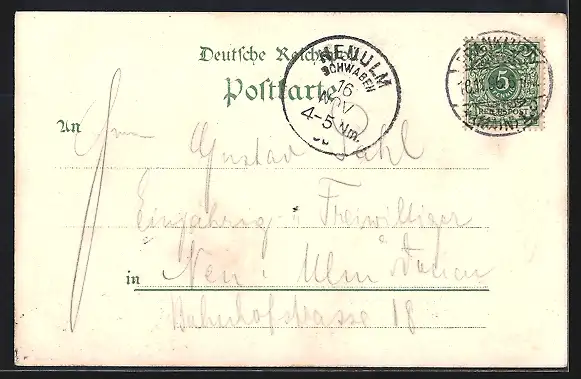 Deutsche Reichspost
Postkarte
NEUULM
SCHWABEN
16
NOV
4-5 Nm.
5
An Herrn Gustav Dahl
Einjährig : Freiwilliger
in Neu : Ulm a Donau
Bahnhofstrasse 18